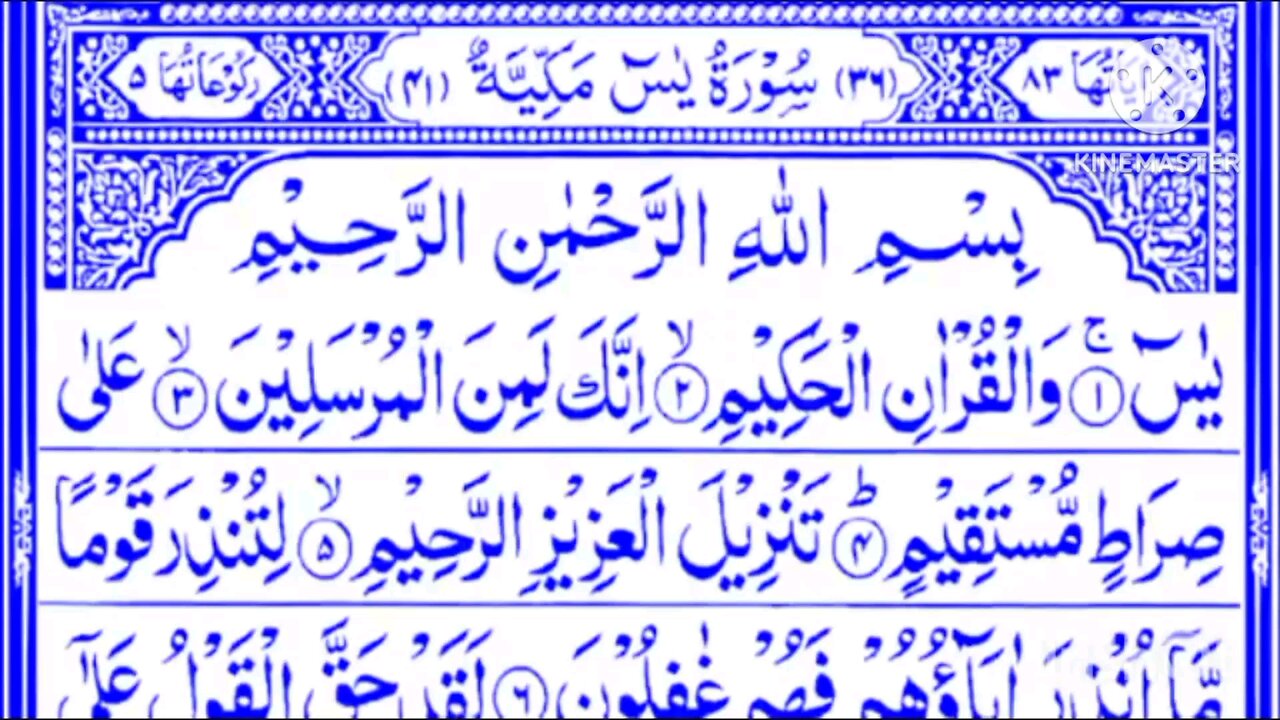 اٰيَاتُهَا ٨٣ (٣٦) سُوْرَةُ يٰسٓ مَكِّيَّةٌ (٤١) رُكُوْعَاتُهَا ٥
KINEMASTER
بِسْمِ اللّٰهِ الرَّحْمٰنِ الرَّحِيْمِ
يٰسٓ ۚ ﴿١﴾ وَالْقُرْاٰنِ الْحَكِيْمِ ۙ ﴿٢﴾ اِنَّكَ لَمِنَ الْمُرْسَلِيْنَ ۙ ﴿٣﴾ عَلٰى
صِرَاطٍ مُّسْتَقِيْمٍ ؕ ﴿۴﴾ تَنْزِيْلَ الْعَزِيْزِ الرَّحِيْمِ ۙ ﴿۵﴾ لِتُنْذِرَ قَوْمًا
مَّاۤ اُنْذِرَ اٰبَآؤُهُمْ فَهُمْ غٰفِلُوْنَ ﴿٦﴾ لَقَدْ حَقَّ الْقَوْلُ عَلٰٓى